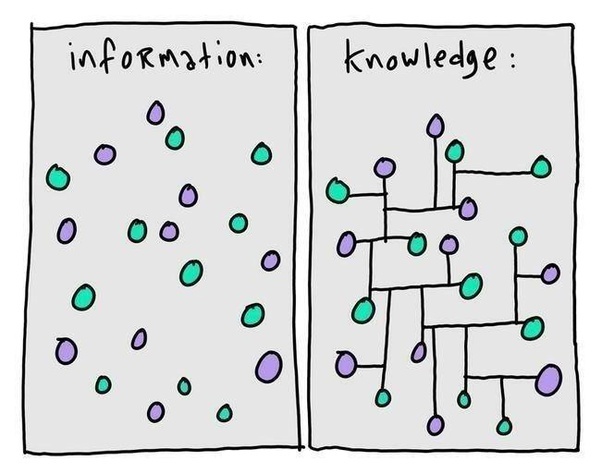 information:
knowledge: